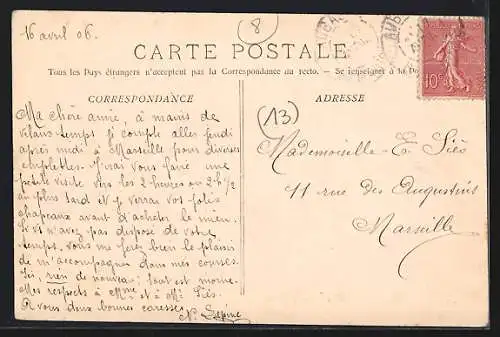 16 avril 06.
8
CARTE POSTALE
Tous les Pays étrangers n'acceptent pas la Correspondance au recto. — Se renseigner à la Po
CORRESPONDANCE
ADRESSE
(13)
10c
Ma chère amie, à moins de
vilain temps je compte aller jeudi
après midi à Marseille pour diverses
emplettes. J'irai vous faire une
petite visite vers les 2 heures ou 2 h 1/2
au plus tard et je verrai vos jolis
chapeaux avant d'acheter le mien.
Si vs n'avez pas disposé de votre
temps, vous me ferez bien le plaisir
de m'accompagner dans mes courses.
Ici, rien de nouveau; tout est morne.
Mes respects à Mme et à Mr Siès.
A vous deux bonnes caresses,
N. Lepine
Mademoiselle E. Siès
11 rue des Augustins
Marseille